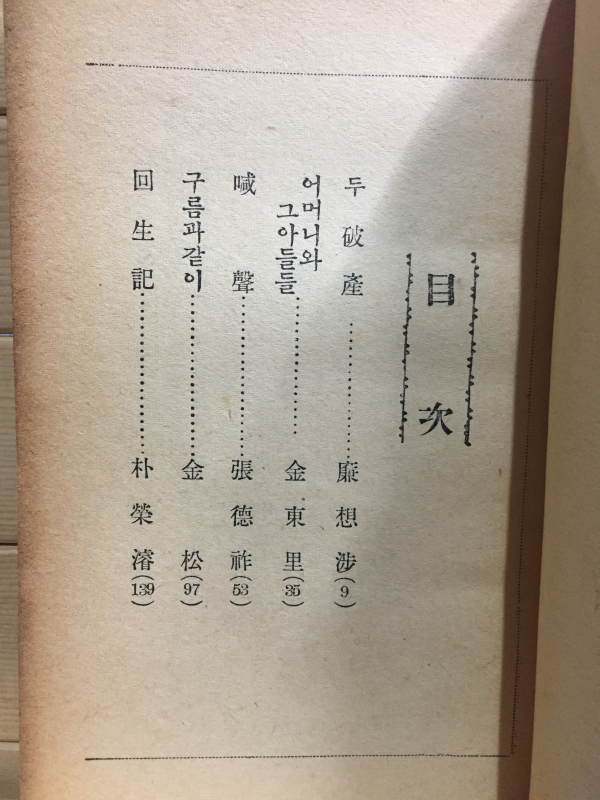 目次
두破產……………廉想涉(9)
어머니와
그아들들……………金東里(35)
喊聲……………張德祚(53)
구름과같이……………金松(97)
回生記……………朴榮濬(139)